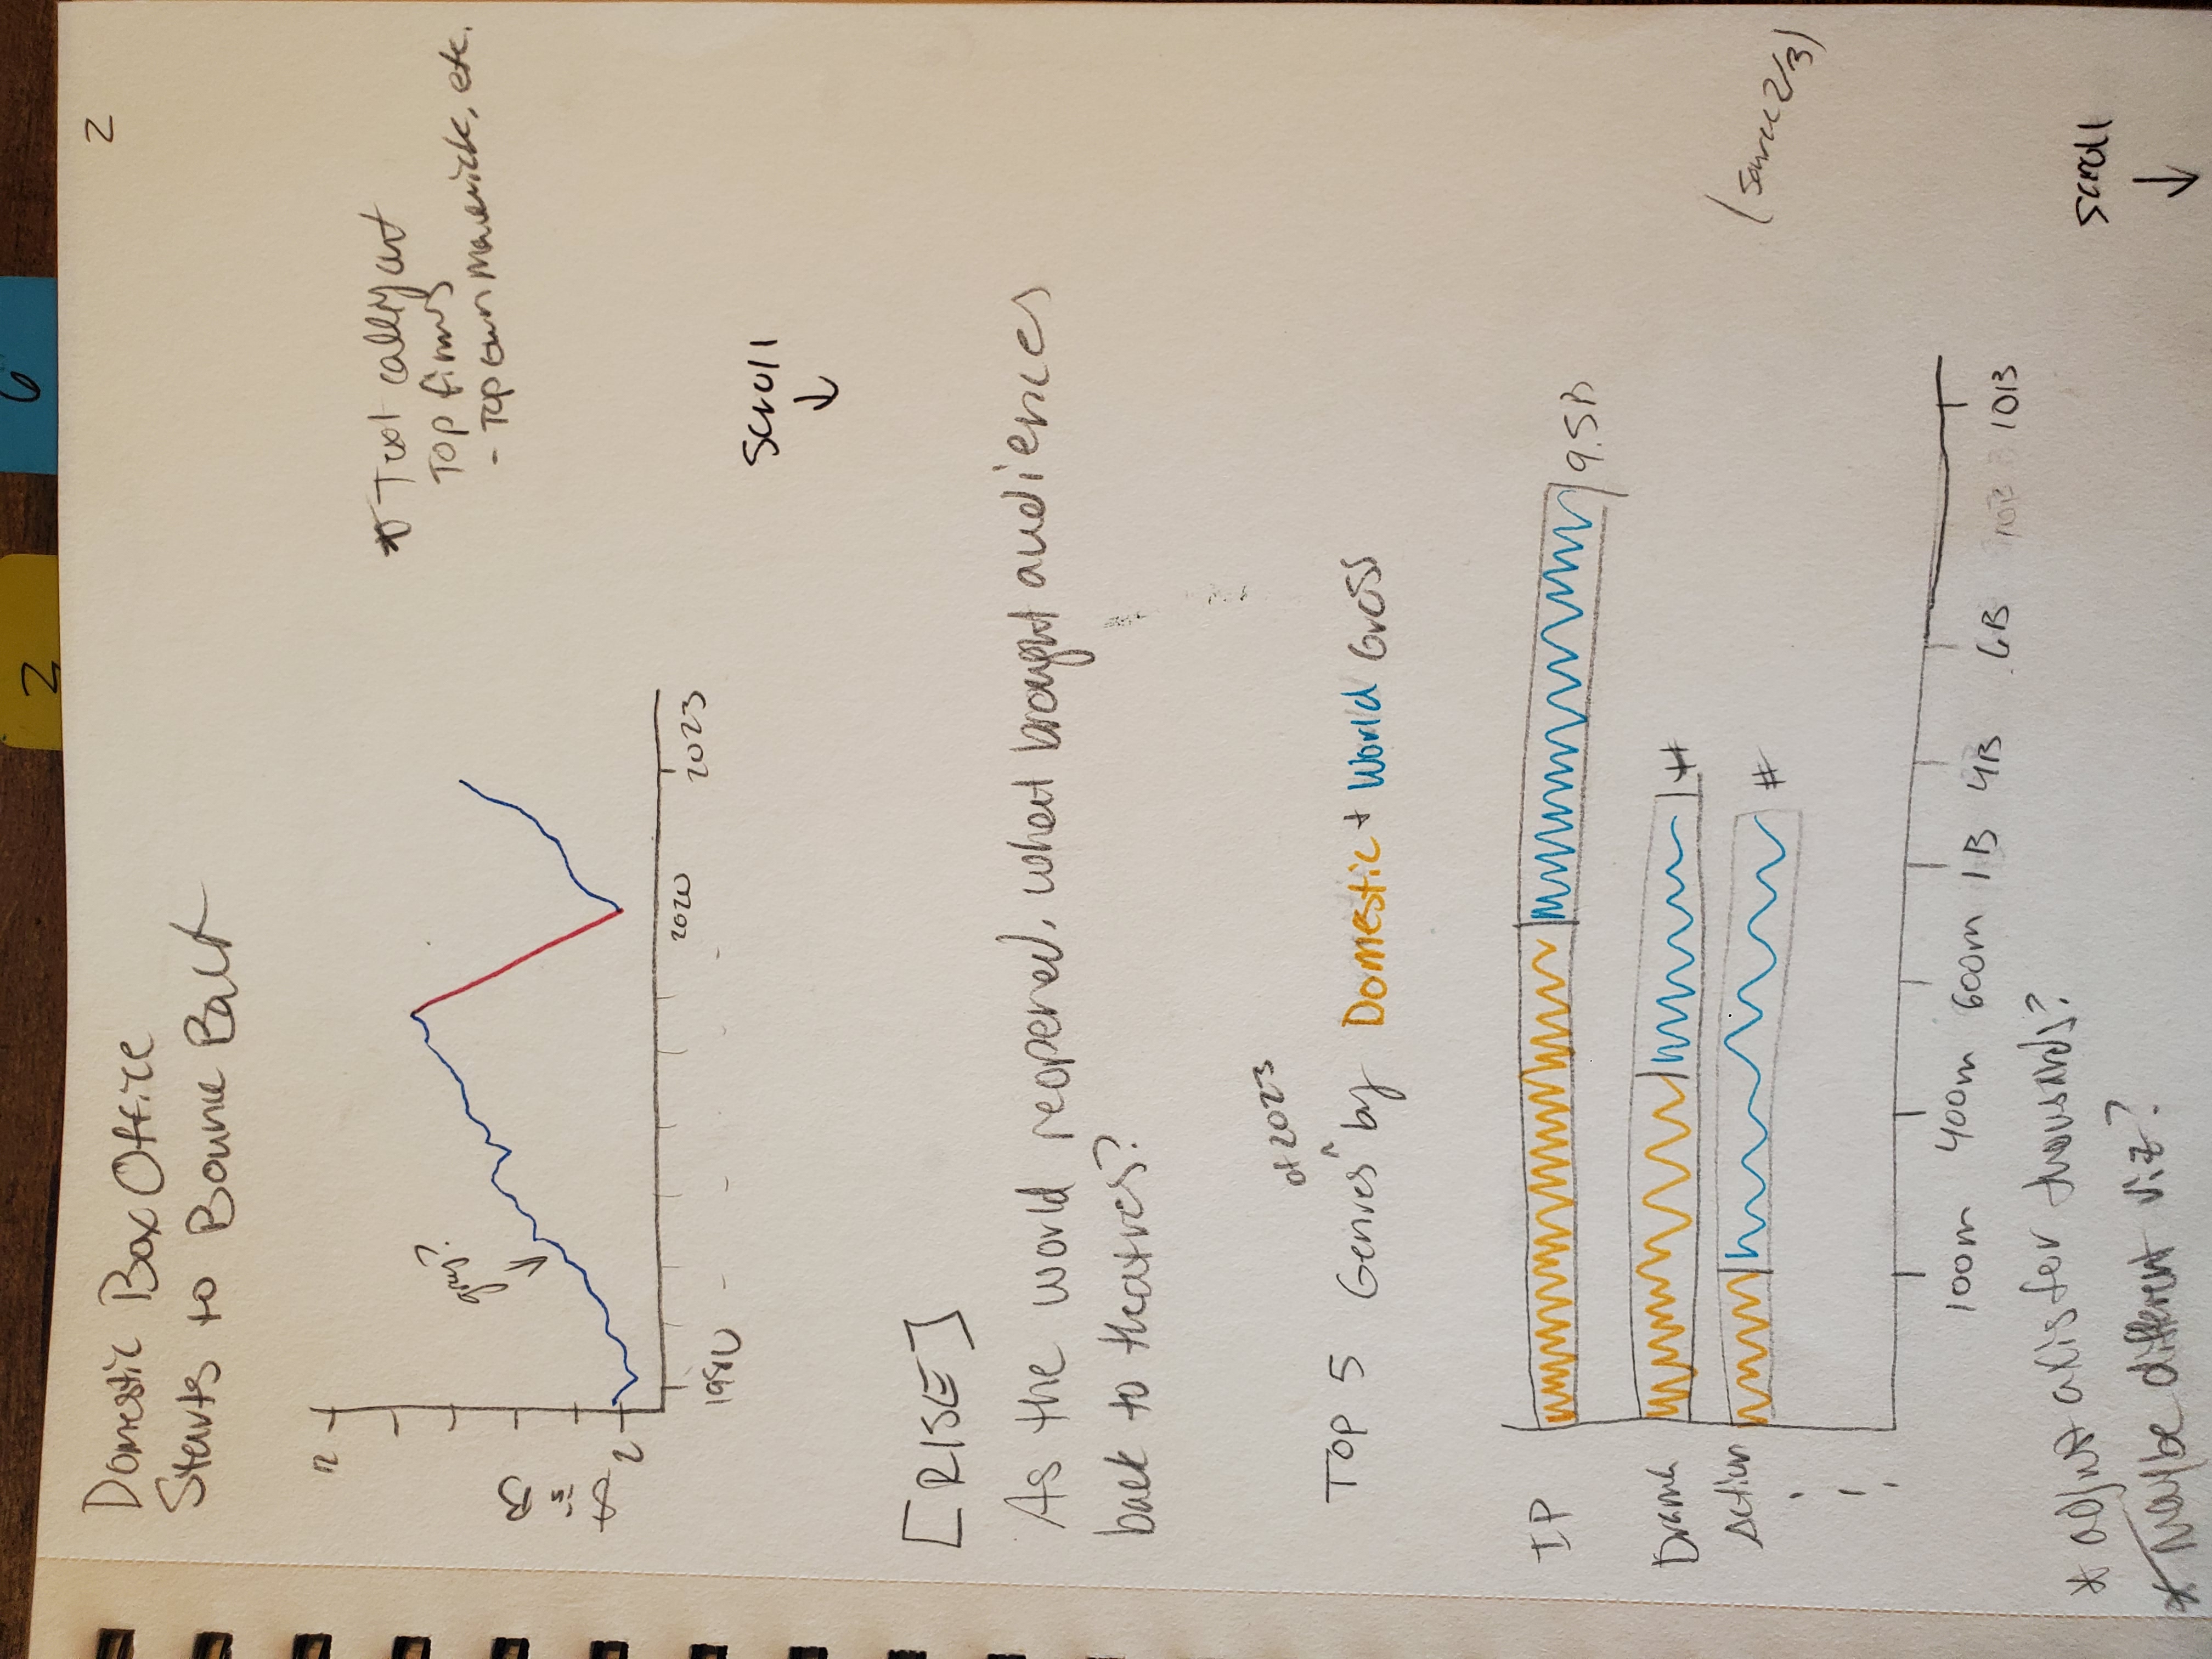 2
6
2
Domestic Box Office
Starts to Bounce Back
12
$ in B
2
gray?
1980
2020
2023
* Text callout
Top films
- Top Gun Maverick, etc.
Scroll
[RISE]
As the world reopened, what brought audiences
back to theatres?
of 2023
Top 5 Genres ^ by Domestic + World Gross
IP
9.5B
Drama
#
Action
#
(source 2/3)
100m 400m 600m 1B 4B 6B 10B
* adjust axis for thousands?
* Maybe different viz?
Scroll